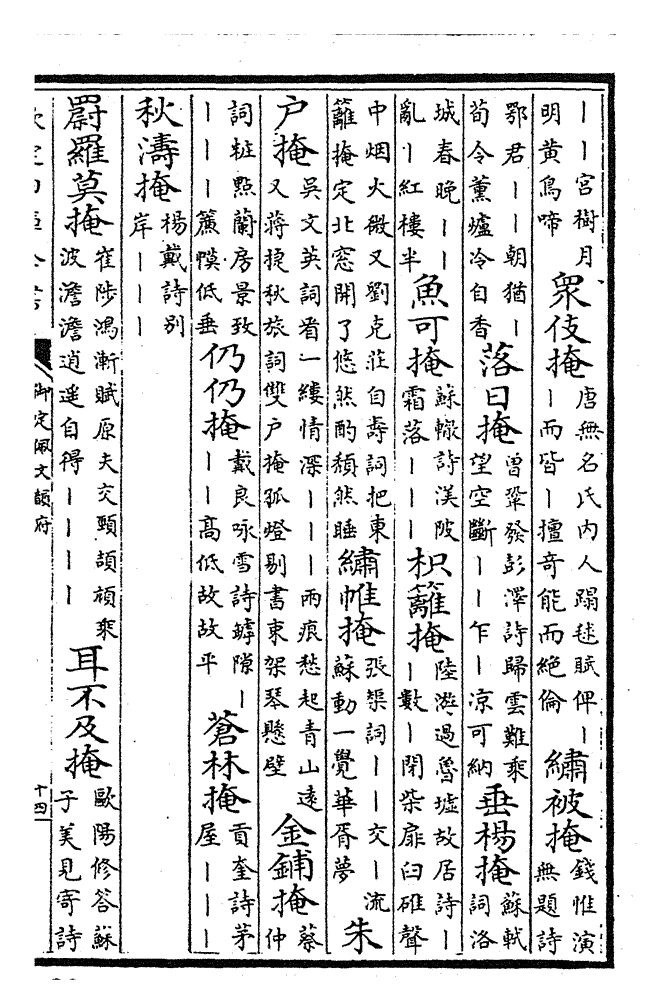 丨丨宮樹月明黄鳥啼 衆伎掩 唐無名氏内人蹋毬賦俾丨丨而皆丨擅奇能而絶倫 繡被掩 錢惟演無題詩
鄂君丨丨朝猶丨荀令薰爐冷自香 落日掩 曾鞏發彭澤詩歸雲難乘望空斷丨丨乍丨凉可納 垂楊掩 蘇軾詞洛
城春晚丨丨亂丨紅樓半 魚可掩 蘇轍詩渼陂霜落丨丨丨 枳籬掩 陸游過魯墟故居詩丨丨數丨閉柴扉臼碓聲
中烟火微又劉克莊自壽詞把東籬掩定北窓開了悠然酌頽然睡 繡帷掩 張榘詞丨丨交丨流蘇動一覺華胥夢 朱
户掩 吴文英詞看一縷情深丨丨丨雨痕愁起青山遠又蔣捷秋旅詞雙户掩孤燈剔書束架琴懸壁 金鋪掩 蔡仲
詞粧㸃蘭房景致丨丨丨簾幙低垂 仍仍掩 戴良咏雪詩罅隙丨丨丨高低故故平 蒼林掩 貢奎詩茅屋丨丨丨
秋濤掩 楊戴詩别岸丨丨丨
罻羅莫掩 崔陟鴻漸賦原夫交頸頡頏乘波澹澹逍遥自得丨丨丨丨 耳不及掩 歐陽修答蘇子美見寄詩
御定佩文韻府
十四